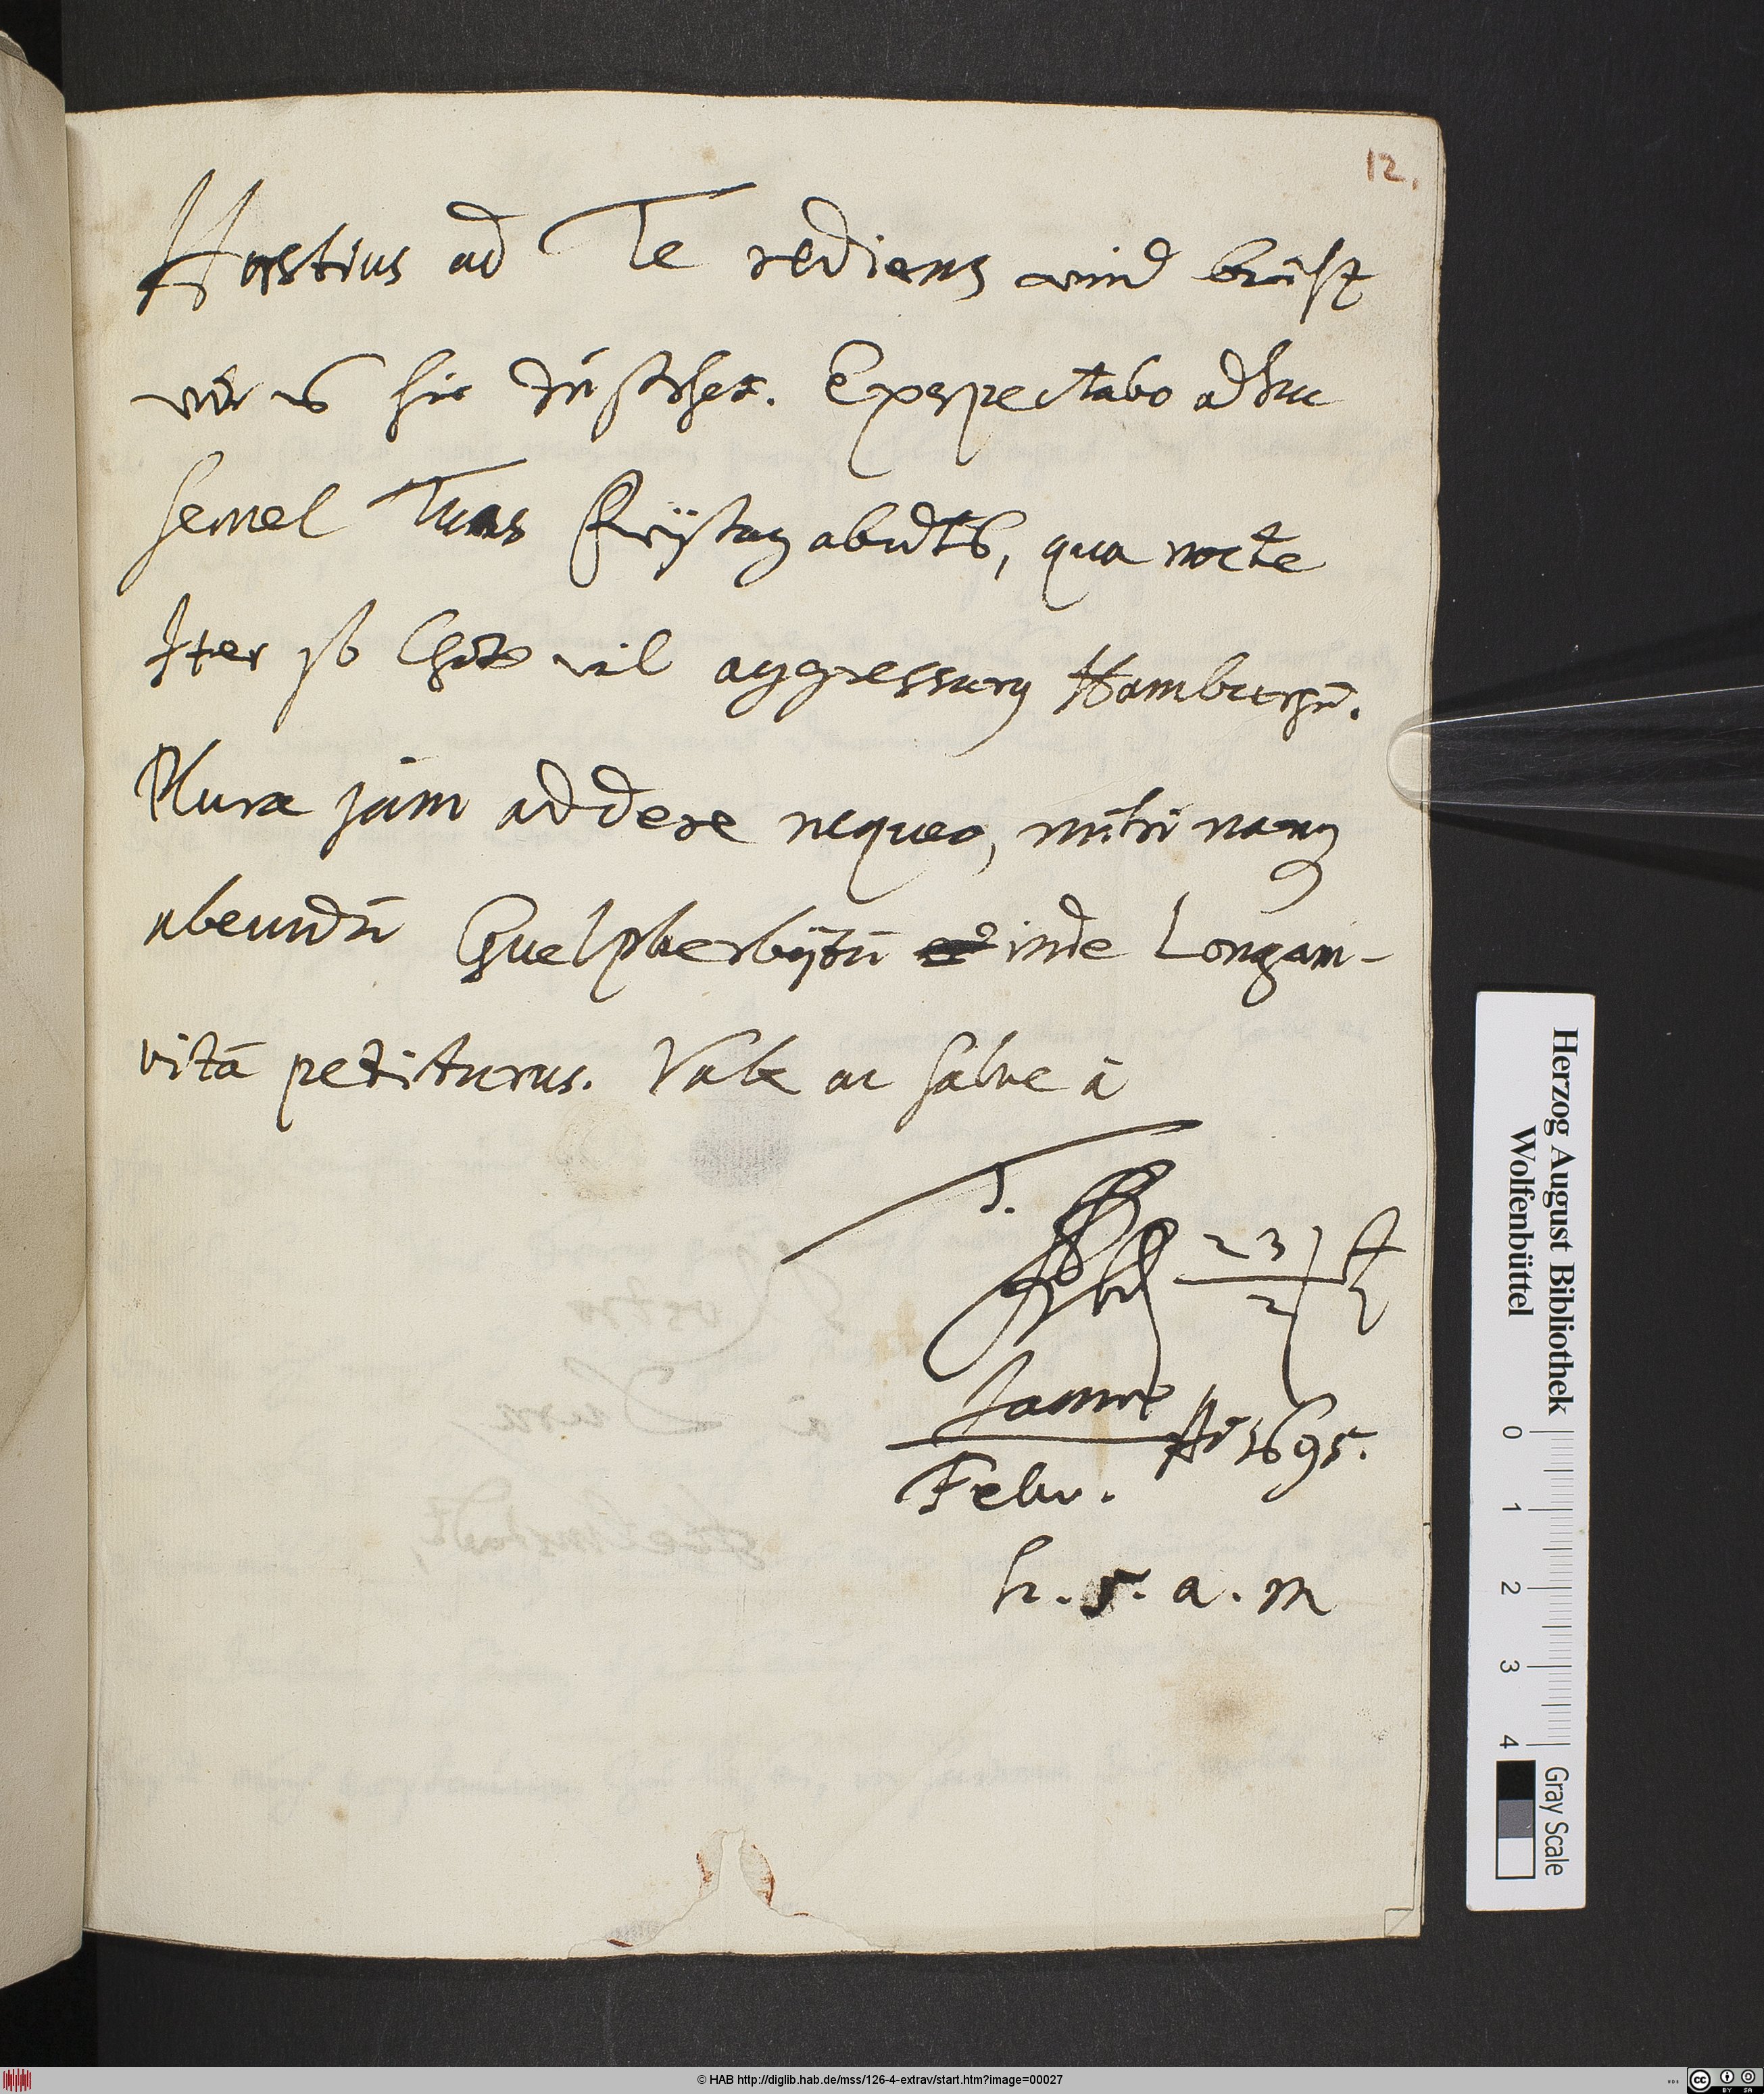 12.
Hostius ad Te rediens wird
wir es hie Expspectabo adhuc
semel Tuas Freÿtag abndts, qua nocte
Iter so Gott wil aggressurq Hamburgū.
Plura jam addere nequeo, mihi namq
abeundū Guelpherbÿtū inde Longam-
vitā petiturus. Vale ac salve à
T.
23
2
Januar
Febr. Aō 1695.
h. 5. a. m
Herzog August Bibliothek
Wolfenbüttel
0 1 2 3 4
Gray Scale
© HAB http://diglib.hab.de/mss/126-4-extrav/start.htm?image=00027